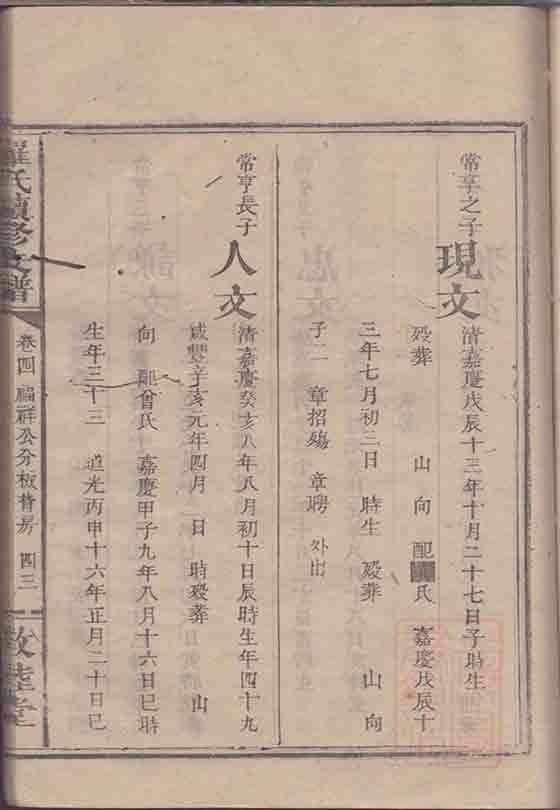 常亨之子
現文
清嘉慶戊辰十三年十月二十七日子時生
歿葬 山 向 配 氏 嘉慶戊辰十
三年七月初三日 時生 歿葬 山 向
子二 章招殤 章聘 外出
常亨長子
人文
清嘉慶癸亥八年八月初十日辰時生年四十九
咸豐辛亥元年四月 日 時歿葬 山
向 配曾氏 嘉慶甲子九年八月十六日巳時
生年三十三 道光丙申十六年正月二十日巳
羅氏續修支譜
卷四 福祥公分板背房 四三
敦睦堂